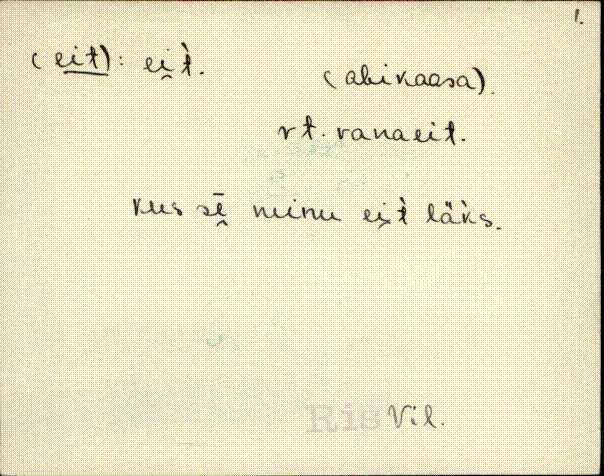 1.
(eit): ei̯t̀.
(abikaasa).
vt. vanaeit.
kus sē̬ minu ei̯t̀ läk̀s.
Ris Vil.